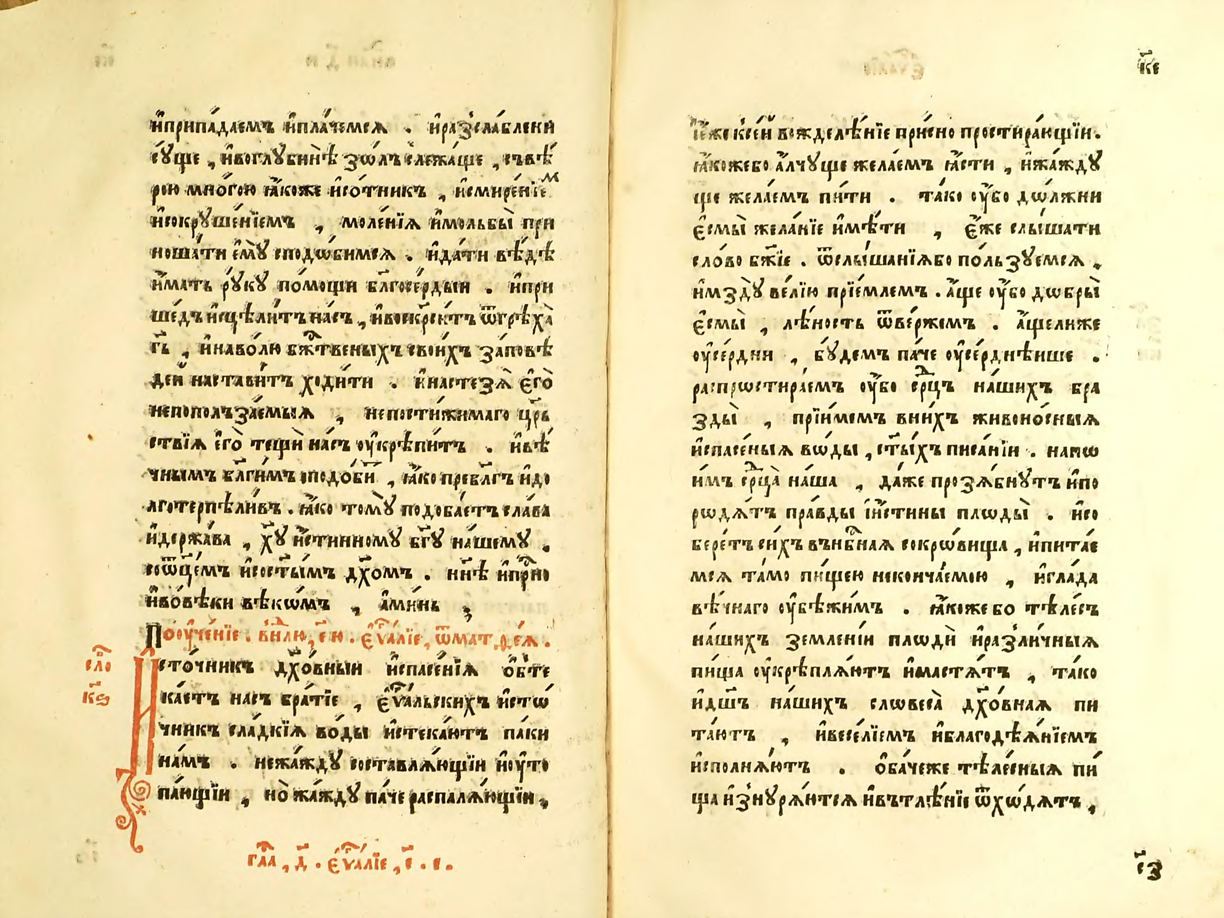 и҆припа́даемъ и҆пла́чемсѧ . и҆раз̾сла́блени
сꙋ́ще , и҆воглꙋбинѣ̀ зо́лъ слежа́ще , съвѣ́
рою мно́гою ꙗ҆́коже и҆со́тникъ , и҆смире́нїемъ
и҆сокрꙋше́нїемъ , моле́нїѧ и҆мольбы̀ при
ноша́ти є҆мꙋ̀ сподо́бимсѧ . и҆да́ти вѣ́дѣ
и҆мать рꙋ́кꙋ по́мощи бл҃госе́рдыи . и҆при
ше́дъ и҆сцѣли́тъ на́съ , и҆воскр҃си́тъ ѿгрѣ́ха
гъ , и҆наво́лю бж҃твеныхъ свои́хъ за́повѣ
деи наста́витъ ходи́ти . и҆настезѧ̀ є҆го̀
непополъза́емыѧ , непостижи́маго црⷭ҇
твїѧ є҆го̀ тещѝ на́съ ᲂу҆крѣпи́тъ . и҆вѣ́
чнымъ бл҃ги́мъ сподо́би , ꙗ҆́ко пребл҃гъ и҆до
лготерпѣли́въ . ꙗ҆́ко томꙋ̀ подоба́етъ сла́ва
и҆держа́ва , хꙋ҃ и҆́стинномꙋ бг҃ꙋ на́шемꙋ ,
соѿц҃емъ и҆сост҃ымъ дх҃омъ . нн҃ѣ и҆при́но
и҆во́вѣки вѣкѡ́мъ , а҆ми́нь ,
Поᲂуче́нїе . внл҃ю , є҃ю . є҆ѵⷢ҇алїе , ѿмат , ѳ҃еѧ .
сло
к҃ѕ
И҆сто́чникъ дх҃о́вныи и҆спасе́нїѧ ѡ҆бте
ка́етъ на́съ бра́тїе , є҆ѵⷢ҇альскихъ и҆стѡ́
чникъ сла́дкїѧ во́ды и҆стека́ютъ па́ки
на́мъ . нежа́ждꙋ составлѧ́ющїи и҆ᲂу҆то
плѧ́ющїи , но̀ жа́ждꙋ па́че распалѧ́ющїи ,
гла҃ , д҃ . є҆ѵⷢ҇алїе , є҃ . є .
к҃е
І҆е́же ксе́й вожделѣ́нїе при́сно простира́ющїи .
ꙗ҆́кожебо а҆́лчꙋще жела́емъ ꙗ҆́сти , и҆жа́ждꙋ
ще жела́емъ пи́ти . та́ко ᲂу҆́бо дѡ́лжни
є҆смы̀ жела́нїе и҆мѣ́ти , є҆́же слы́шати
сло́во бж҃їе . ѿслы́шанїѧбо по́льзꙋемсѧ ,
и҆мздꙋ̀ ве́лїю прїе́млемъ . а҆́ще ᲂу҆́бо дѡ́бры
є҆смы̀ , лѣ́ность ѿве́ржемъ . а҆́щелиже
ᲂу҆се́рдни , бꙋ́демъ па́че ᲂу҆се́рднѣише .
распрѡстира́емъ ᲂу҆́бо срⷣцъ на́шихъ бра
зды̀ , прїи́мемъ вни́хъ живоно́сныѧ
и҆спасе́ныѧ вѡ́ды , ст҃ы́хъ писа́нїи . напѡ
и́мъ срⷣца̀ на́ша , да́же прозѧ́бнꙋтъ и҆по
рѡдѧ́тъ пра́вды і҆и҆́стины плѡды̀ . и҆со
бере́тъ си́хъ вън҃бнаѧ сокро́вища , и҆пита́е
мсѧ та́мо пи́щею неконча́емою , и҆гла́да
вѣ́чнаго ᲂу҆бѣжи́мъ . ꙗ҆́коже бо тѣле́съ
на́шихъ зе́мленїи плѡдѝ и҆раз̾ли́чныѧ
пи́ща ᲂу҆крѣплѧ́ютъ и҆мастѧ́тъ , та́ко
и҆дш҃ъ на́шихъ слѡвеса̀ дх҃о́внаѧ пи
та́ютъ , и҆весе́лїемъ и҆благодѣѧ́нїемъ
и҆сполнѧ́ютъ . ѻ҆ба́чеже тѣле́сныѧ пи́
ща и҆знꙋрѧ́ютсѧ и҆вътлѣ́нїе ѿхѡ́дѧтъ ,